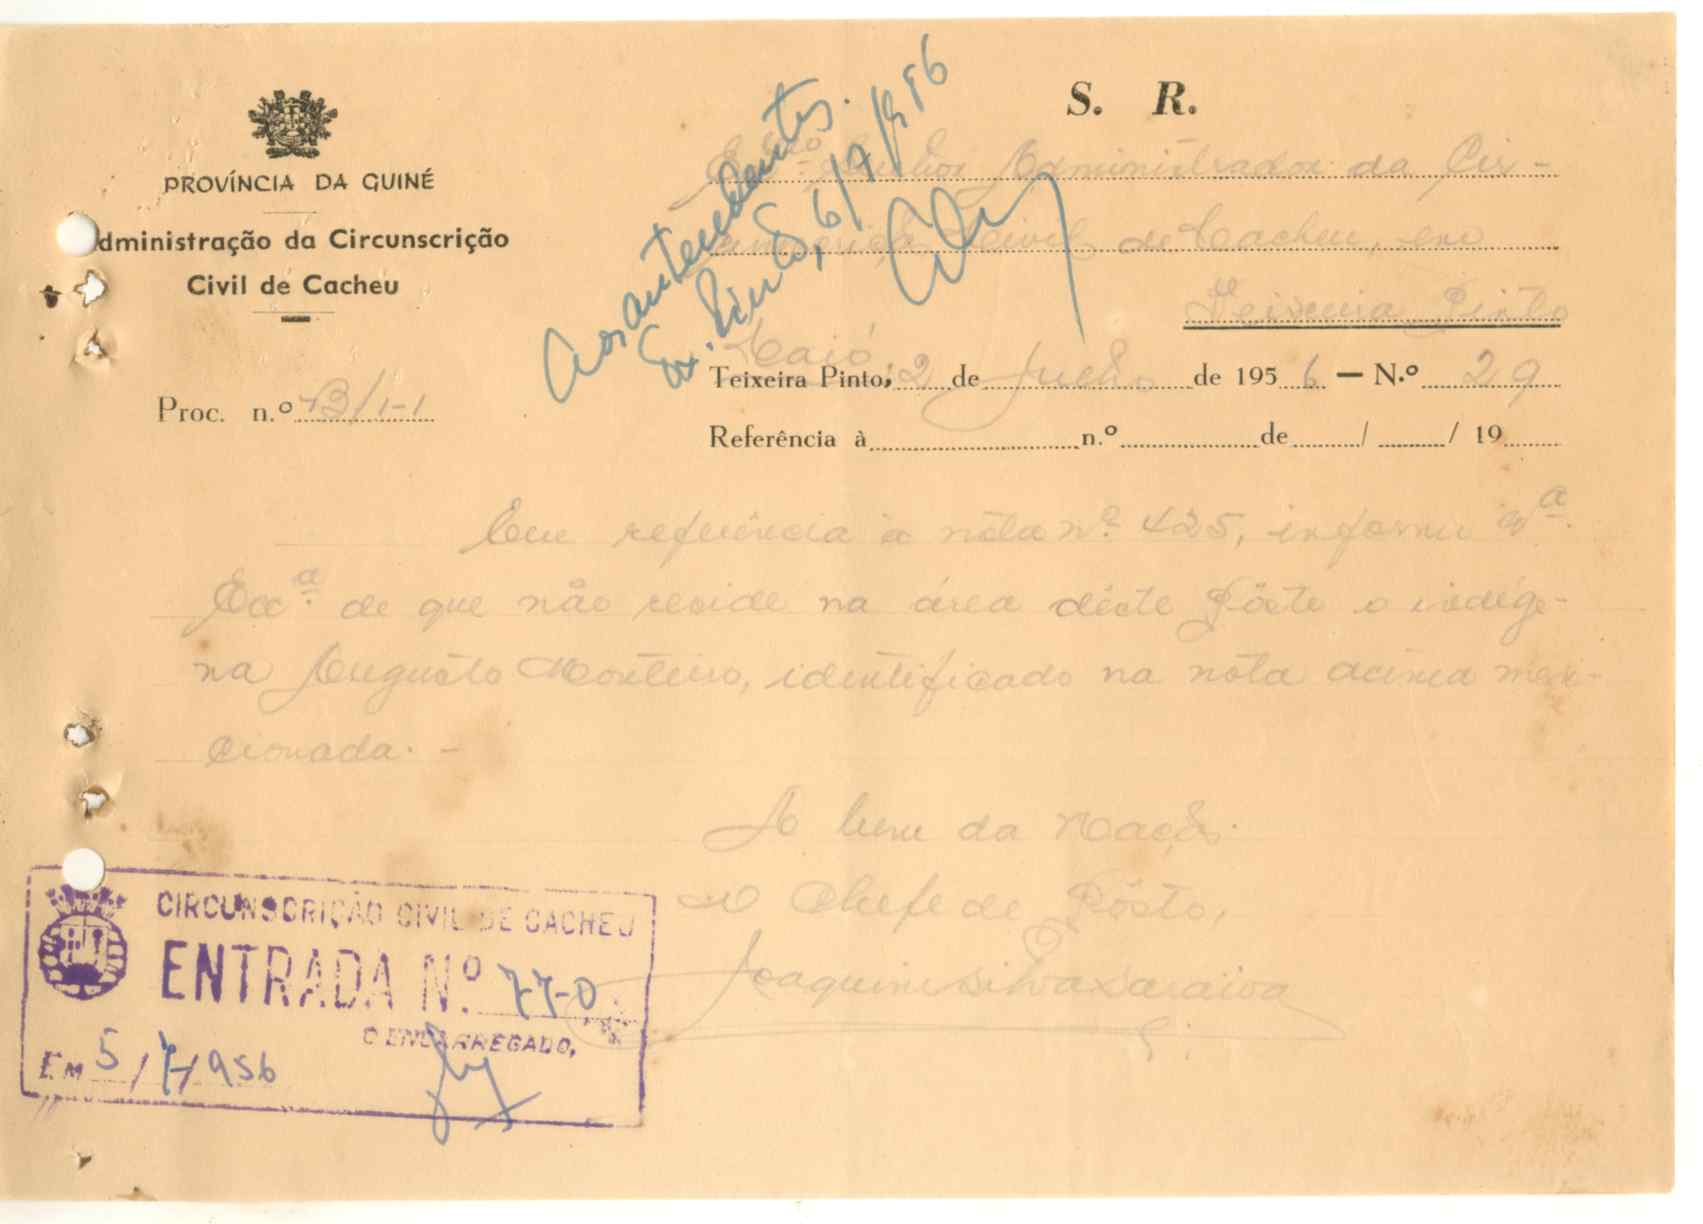 S. R.
PROVÍNCIA DA GUINÉ
Administração da Circunscrição
Civil de Cacheu
Aos antecedentes.
Tx. Pinto, 6/7/956
Exmo. Senhor Administrador da Cir-
cunscrição Civil de Cacheu, em
Teixeira Pinto
Caió,
Teixeira Pinto, 2 de Julho de 1956 — N.º 29
Proc. n.º B/1-1
Referência à n.º de / / 19
Em referência à nóta nº. 425, informo Vª.
Excª. de que não reside na área dêste Pôsto o indíge-
na Augusto Monteiro, identificado na nóta acima men-
cionada. -
A bem da Nação.
O Chefe de Pôsto,
Joaquim Silva Saraiva
CIRCUNSCRIÇÃO CIVIL DE CACHEU
ENTRADA N.º 770
O ENCARREGADO,
EM 5/7/956